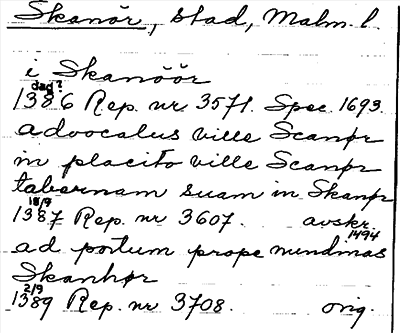 Skanör, stad, Malm. l.
i Skanöör
dag?
1386 Rep. nr 3571. Spec. 1693.
advocatus ville Scanør
in placito ville Scanør
tabernam suam in Skanør
18/9
1387 Rep. nr 3607. avskr. 1494
ad portum prope nundinas
Skanhør
2/9
1389 Rep. nr 3708. orig.